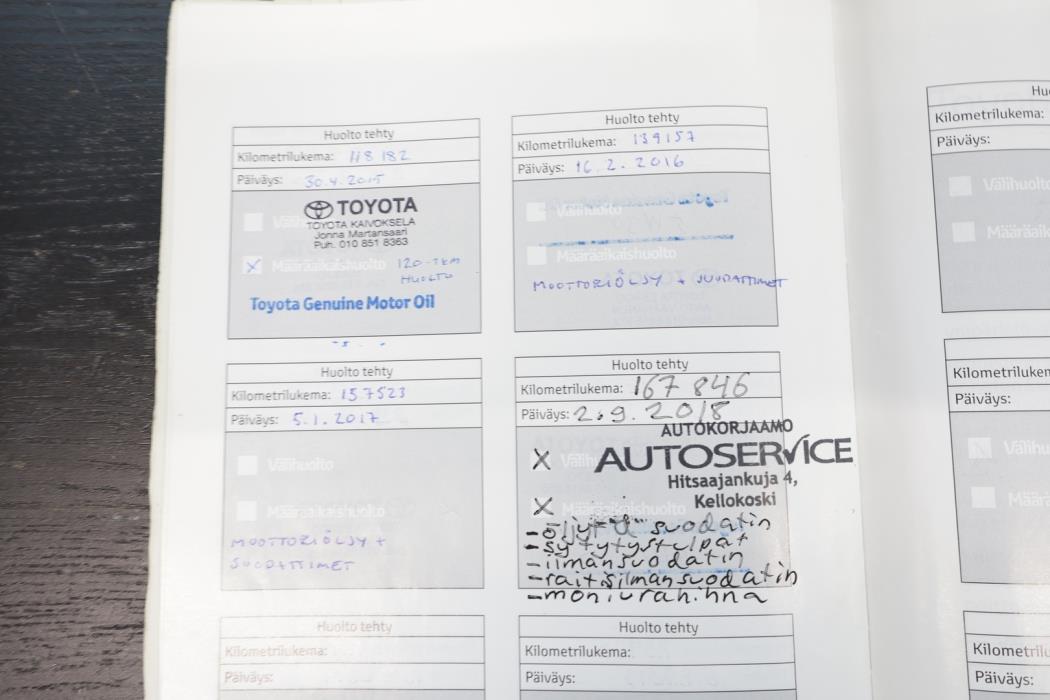 Huolto tehty
Kilometrilukema: 118 182
Päiväys: 30.4.2015
TOYOTA
TOYOTA KAIVOKSELA
Jonna Martansaari
Puh. 010 851 8363
Määräaikaishuolto 120-TKM
HUOLTO
Toyota Genuine Motor Oil
Huolto tehty
Kilometrilukema: 139157
Päiväys: 16.2.2016
Välihuolto
Määräaikaishuolto
MOOTTORIÖLJY + SUODATTIMET
Huolto tehty
Kilometrilukema: 157523
Päiväys: 5.1.2017
Välihuolto
Määräaikaishuolto
MOOTTORIÖLJY +
SUODATTIMET
Huolto tehty
Kilometrilukema: 167 846
Päiväys: 2.9.2018
AUTOKORJAAMO
X AUTOSERVICE
Hitsaajankuja 4,
Kellokoski
X Määräaikaishuolto
-öljyt suodatin
-sytytystulpat
-ilmansuodatin
-raitisilmansuodatin
-moniurahihna
Huolto tehty
Kilometrilukema:
Päiväys:
Huolto tehty
Kilometrilukema:
Päiväys:
Kilometrilukema:
Päiväys:
Välihuolto
Päiväys:
Päiväys: